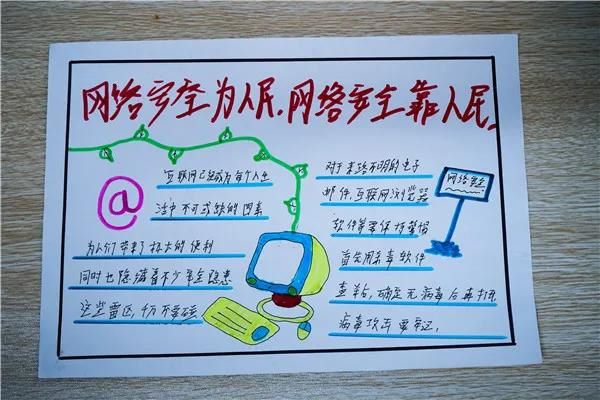 网络安全为人民,网络安全靠人民。
@
互联网已经成为每个人生
活中不可或缺的因素
为人们带来了极大的便利
同时也隐藏着不少安全隐患
这些雷区,千万不要碰
对于来路不明的电子
邮件,互联网浏览器
软件等要保持警惕
首先用杀毒软件
查杀,确定无病毒后再打开
病毒攻击要牢记。
网络安全